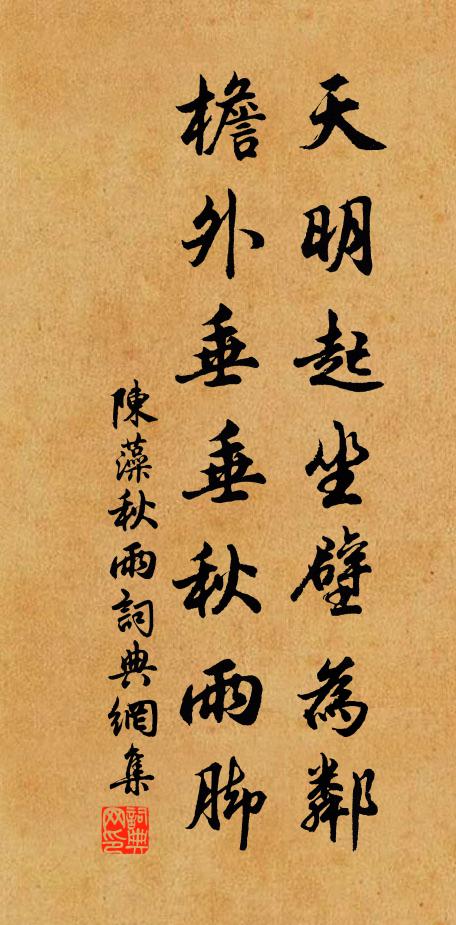 天明起坐壁為鄰
檐外垂垂秋雨脚
陳藻秋雨詞典網集
詞典网印